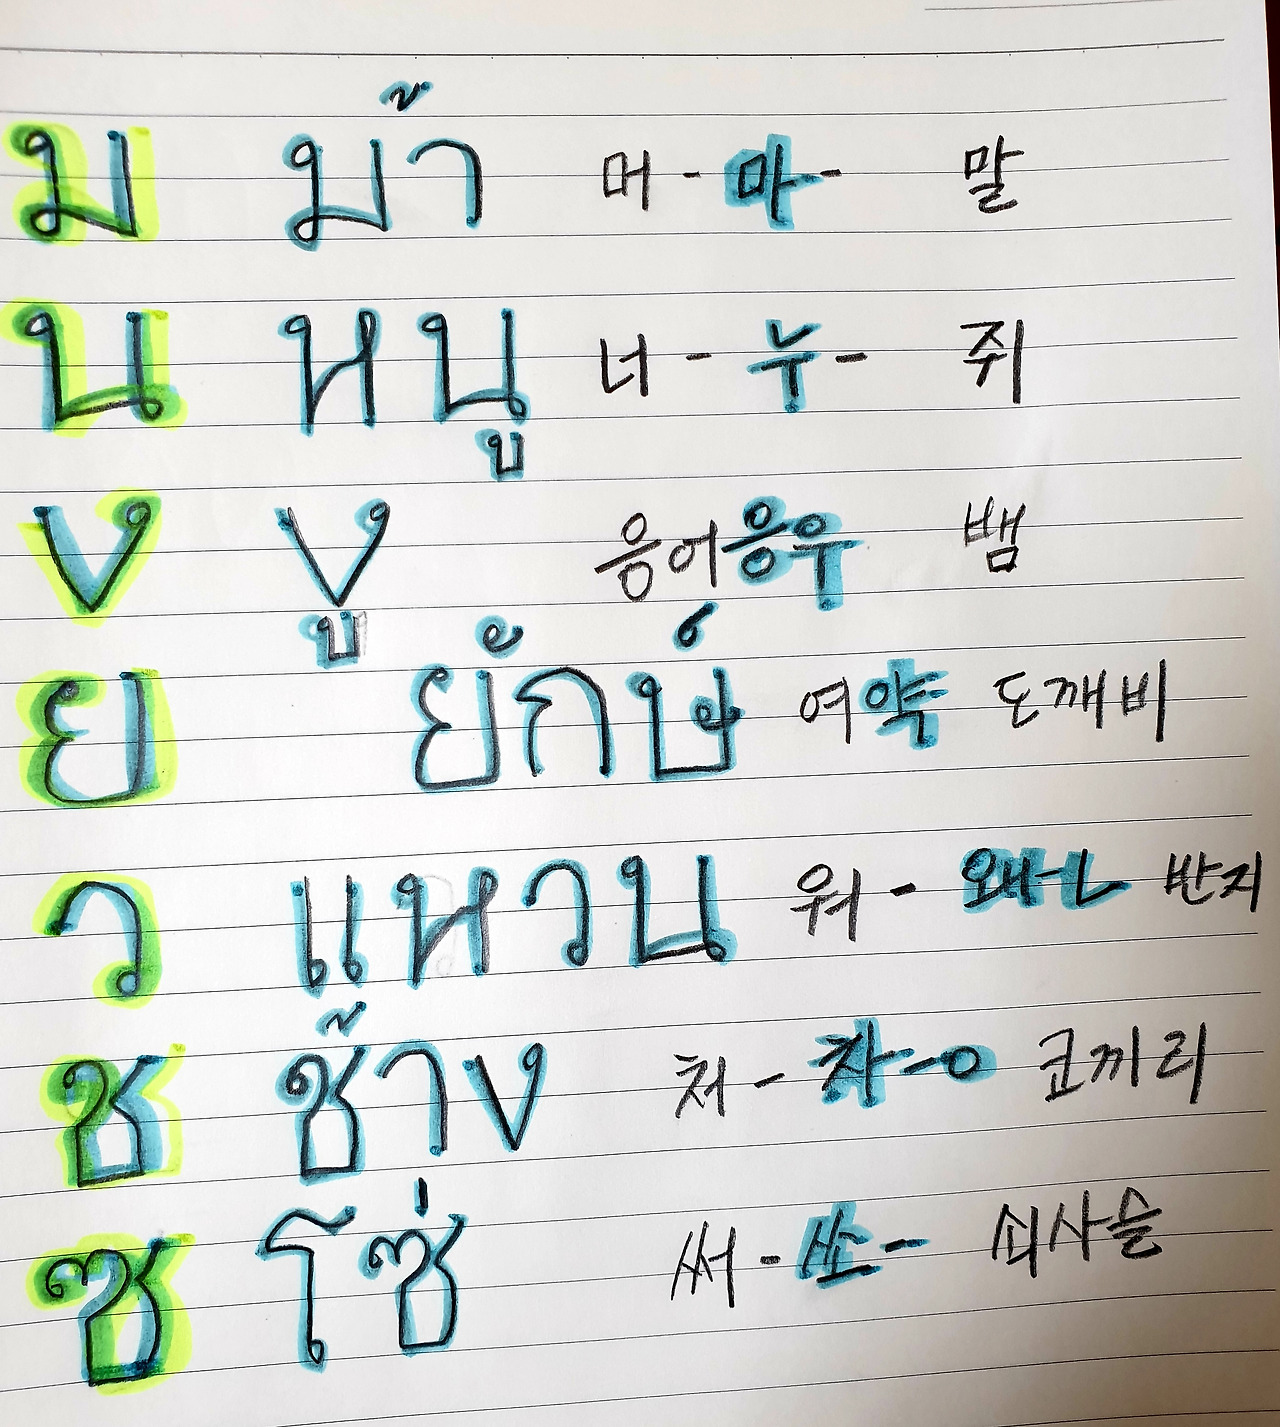 ม ม้า 머-마- 말
น หนู 너-누- 쥐
ง งู 응어응우 뱀
ย ยักษ์ 여약 도깨비
ว แหวน 워-왜-ㄴ 반지
ช ช้าง 처-차-ㅇ 코끼리
ซ โซ่ 써-쏘- 쇠사슬